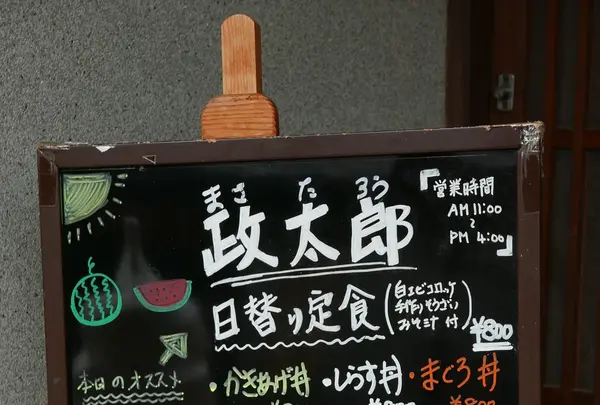 まさたろう
政太郎
「営業時間
AM 11:00
~
PM 4:00」
日替り定食
(白エビコロッケ
手作りそうざい
おみそ汁 付)
¥800
本日のオススメ
・かきあげ丼 ・しらす丼 ・まぐろ丼